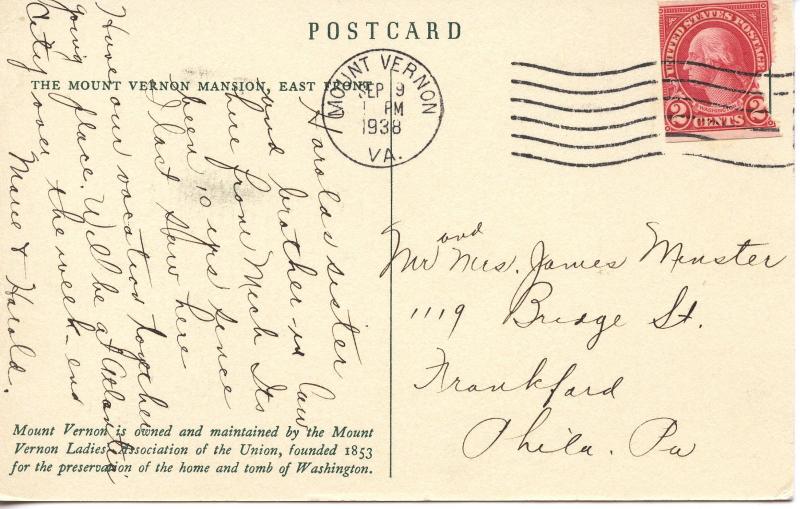 POSTCARD
THE MOUNT VERNON MANSION, EAST FRONT
MOUNT VERNON
SEP 9
1 PM
1938
VA.
UNITED STATES POSTAGE
WASHINGTON
2 CENTS 2
Harolds sister
and brother-in law
here from Mich Its
been 10 yrs since
I last saw here
Have our vacation together
going place. Will be at Atlantic
City over the week-end
Marie & Harold.
Mr and Mrs. James Minster
1119 Bridge St.
Frankford
Phila. Pa
Mount Vernon is owned and maintained by the Mount
Vernon Ladies' Association of the Union, founded 1853
for the preservation of the home and tomb of Washington.